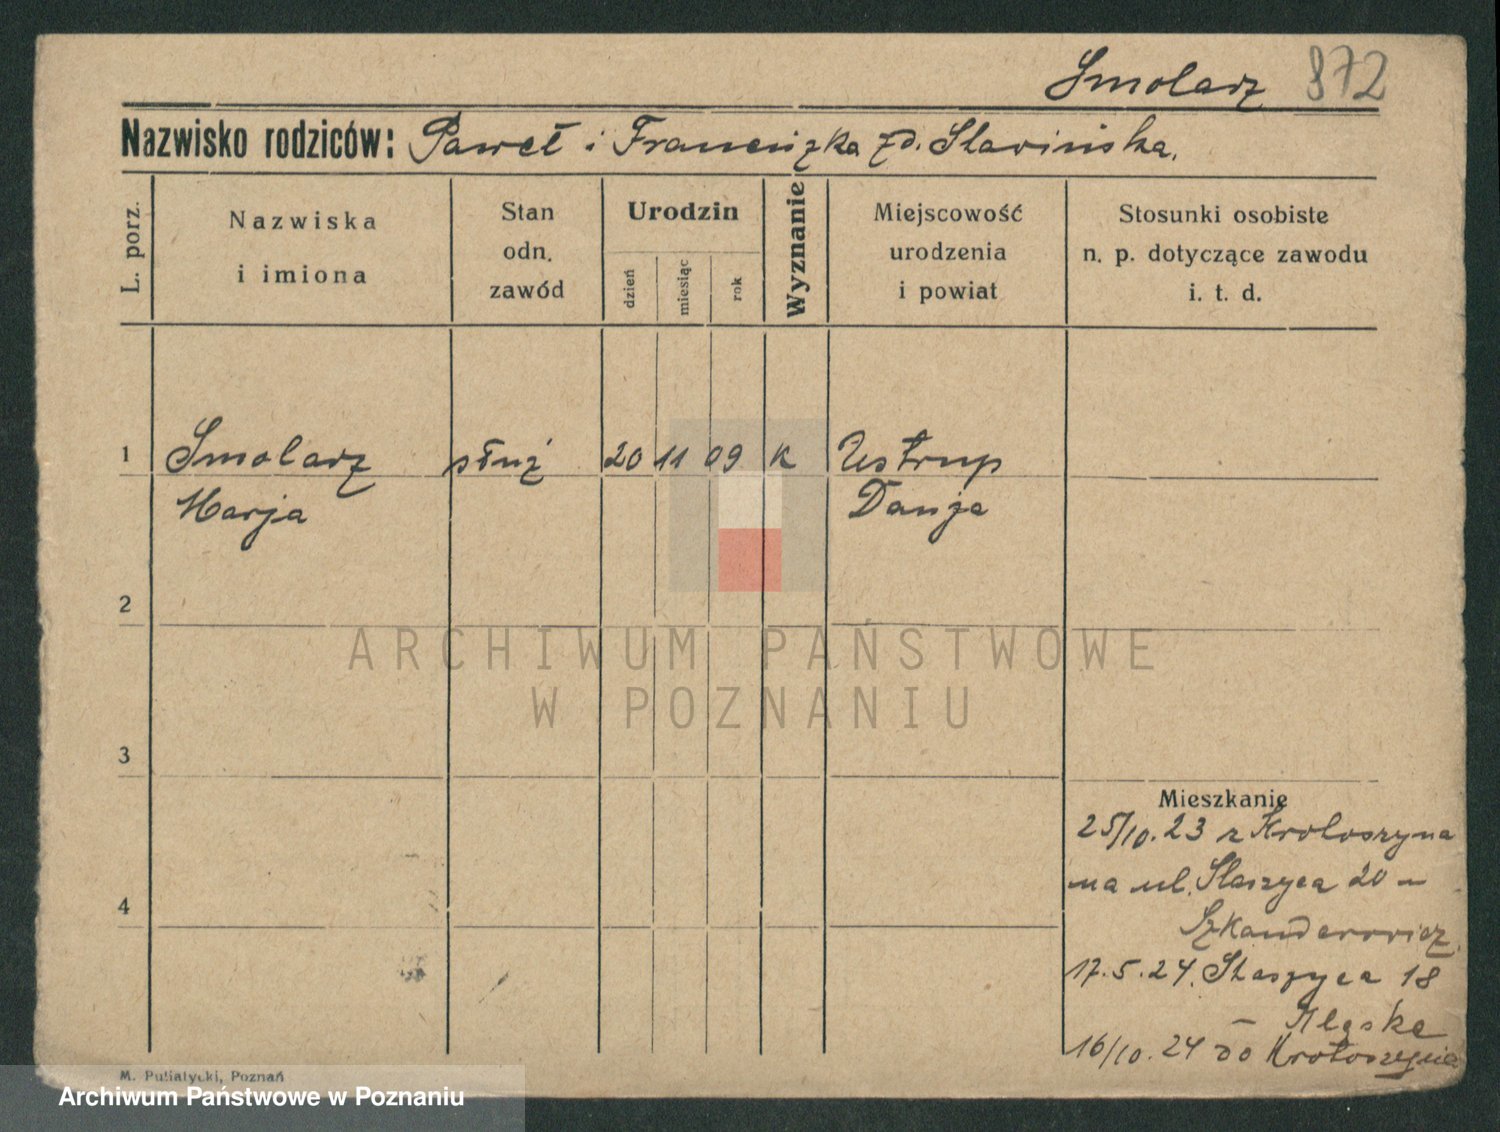 Smolarz 872
Nazwisko rodziców: Paweł i Franciszka zd. Slavinska.
L. porz.
Nazwiska
i imiona
Stan
odn.
zawód
Urodzin
dzień
miesiąc
rok
Wyznanie
Miejscowość
urodzenia
i powiat
Stosunki osobiste
n. p. dotyczące zawodu
i. t. d.
1 Smolarz służ 20 11 09 K Ustrup
Marja Danja
2
3
4
Mieszkanie
25/10.23 z Krotoszyna
na ul. Staszyca 20 –
Szkanderowicz
17.5.24. Staszyca 18
–
16/10.24 do Krotoszyna
M. Putiatycki, Poznań
ARCHIWUM PAŃSTWOWE
W POZNANIU
Archiwum Państwowe w Poznaniu